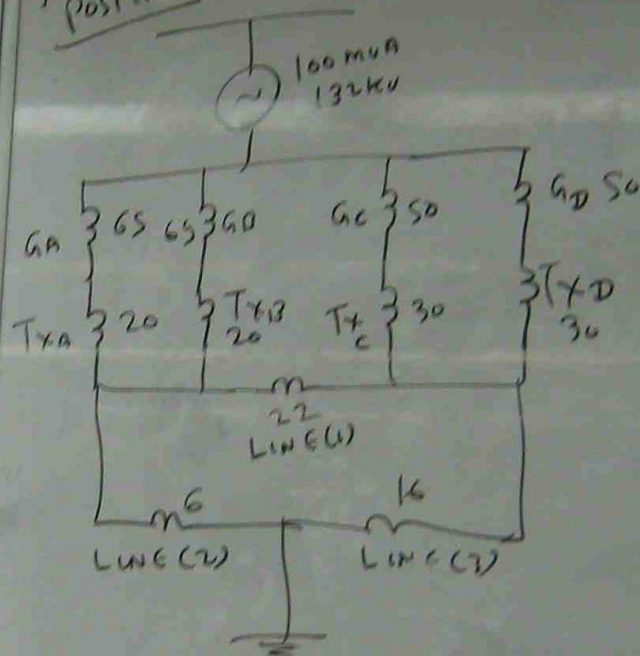 100 MVA
132KV
GA 65 65 GB GC 50 GD 50
TXA 20 TXB 20 TXC 30 TXD 30
22
LINE(1)
6 16
LINE(2) LINE(3)